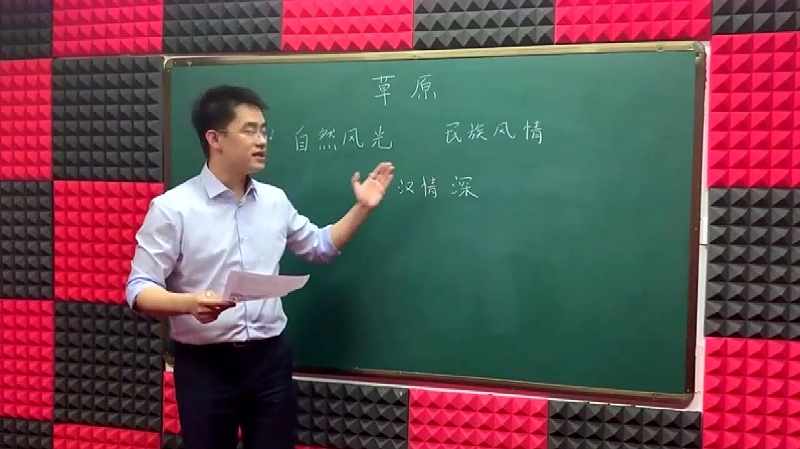 草原
自然风光 民族风情
汉情深